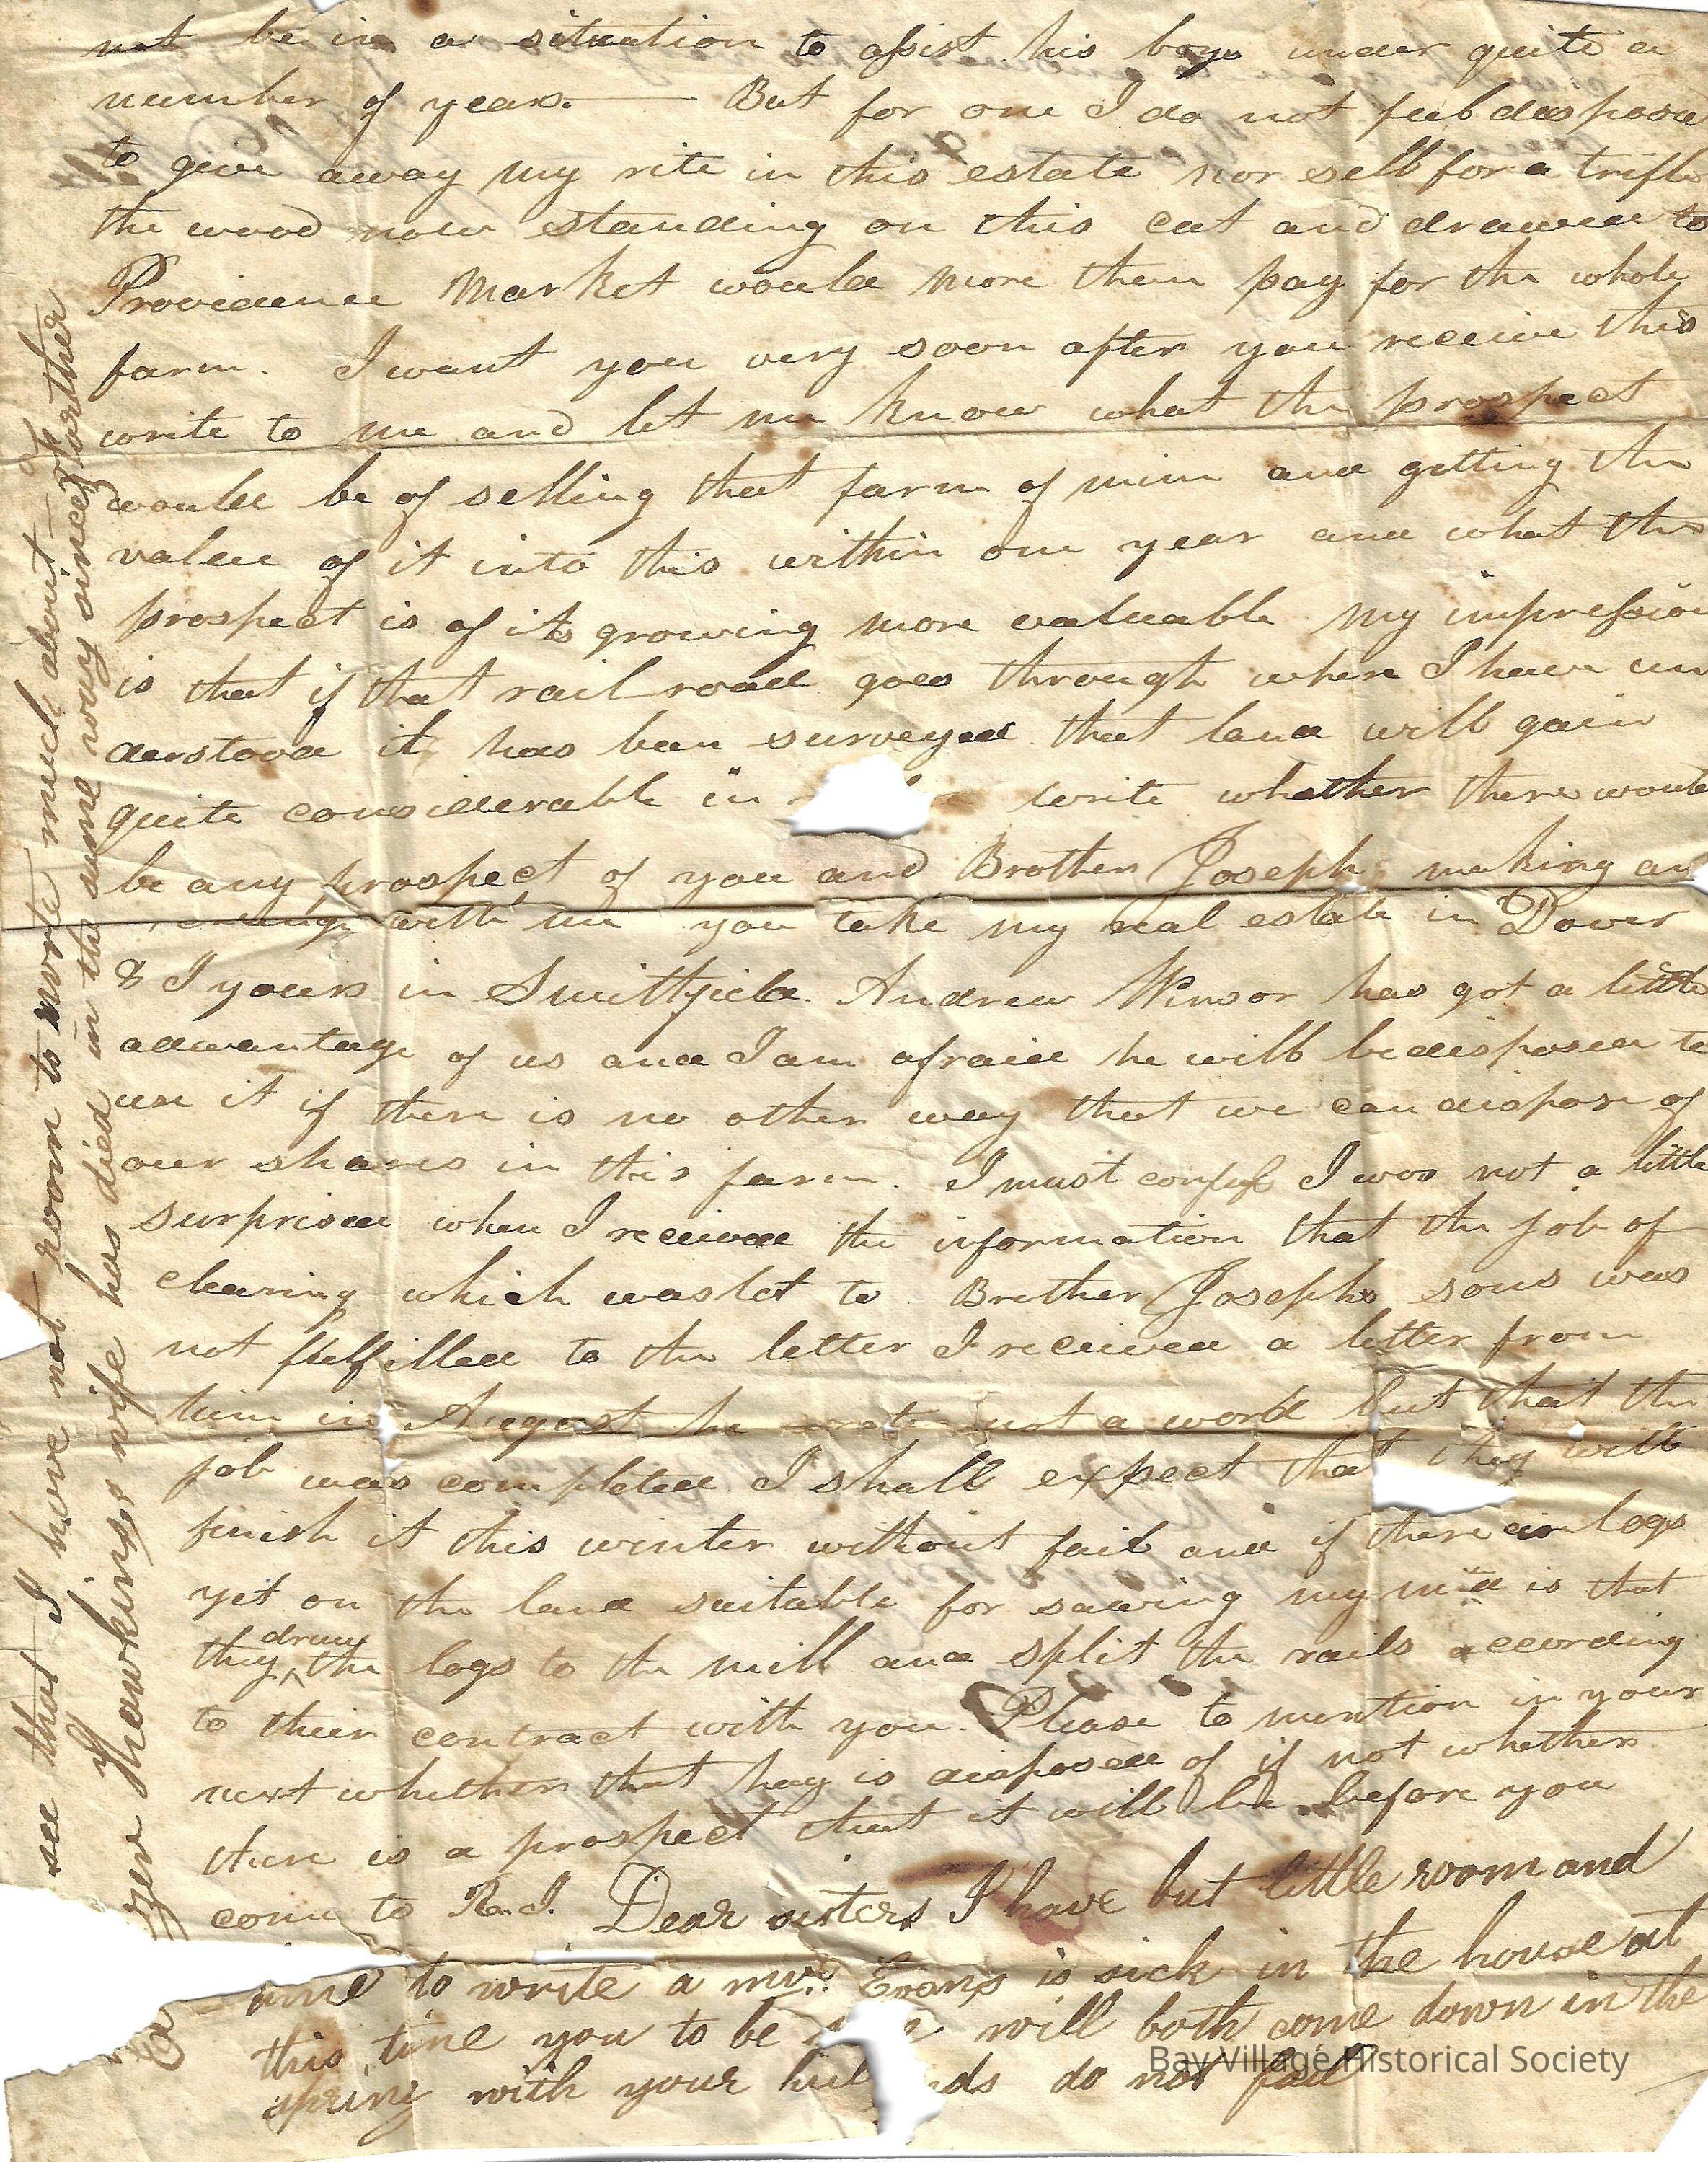 not be in a situation to assist his boys under quite a
number of years. — But for one I do not feel dispose
to give away my rite in this estate nor sell for a trifle
the wood now standing on this cut and drawed to
Providence Market would more then pay for the whole
farm. I want you very soon after you receive this
write to me and let me know what the prospect
would be of selling that farm of mine and getting the
value of it into this within one year and what the
prospect is of its growing more valuable my impression
is that if that rail road goes through where I have un
derstood it has been surveyed that land will gain
quite considerable in write whether there would
be any prospect of you and Brother Joseph making an
with me you take my real estate in Dover
& I yours in Smithfield. Andrew Winsor has got a little
advantage of us and I am afraid he will be disposed to
use it if there is no other way that we can dispose of
our shares in this farm. I must confess I was not a little
surprised when I received the information that the job of
clearing which was let to Brother Josephs sons was
not fulfilled to the letter I received a letter from
him in August he wrote not a word but that the
job was completed I shall expect that they will
finish it this winter without fail and if there are logs
yet on the land suitable for sawing my mind is that
they draw the logs to the mill and split the rails according
to their contract with you. Please to mention in your
next whether that hay is disposed of if not whether
there is a prospect that it will be before you
come to R.I. Dear sisters I have but little room and
time to write a mrs. Evans is sick in the house at
this time you to be will both come down in the
spring with your hus nds do not fail
see that I have not room to write much about
zer Hawkinses wife has died in the same way since
Bay Village Historical Society